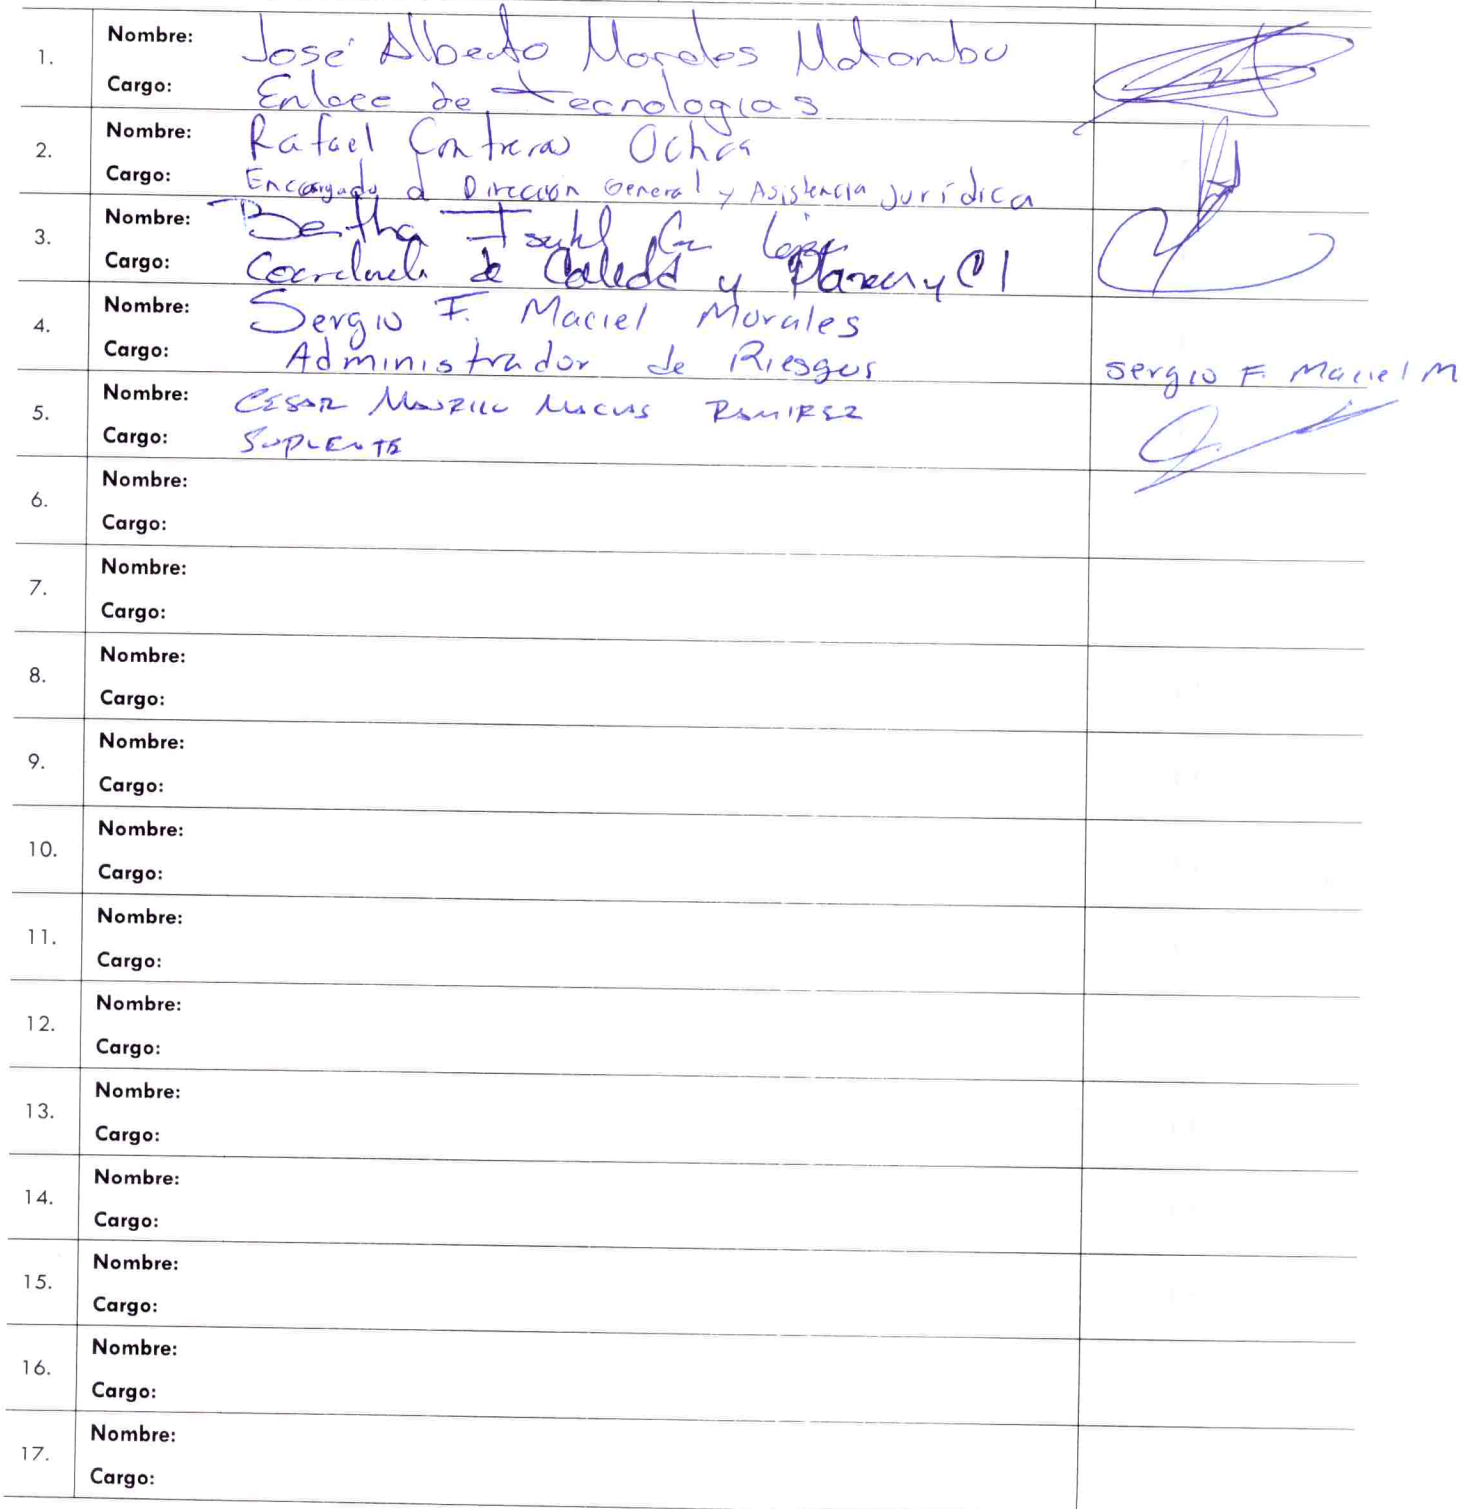 1.
Nombre: José Alberto Morales Matambu
Cargo: Enlace de Tecnologías
2.
Nombre: Rafael Contreras Ochoa
Cargo: Encargado d Dirección General y Asistencia Jurídica
3.
Nombre: Bertha Isabel López
Cargo: de Calidad y y CI
4.
Nombre: Sergio F. Maciel Morales
Cargo: Administrador de Riesgos
Sergio F. Maciel M
5.
Nombre: CESAR MACIAS RAMIREZ
Cargo: SUPLENTE
6.
Nombre:
Cargo:
7.
Nombre:
Cargo:
8.
Nombre:
Cargo:
9.
Nombre:
Cargo:
10.
Nombre:
Cargo:
11.
Nombre:
Cargo:
12.
Nombre:
Cargo:
13.
Nombre:
Cargo:
14.
Nombre:
Cargo:
15.
Nombre:
Cargo:
16.
Nombre:
Cargo:
17.
Nombre:
Cargo: